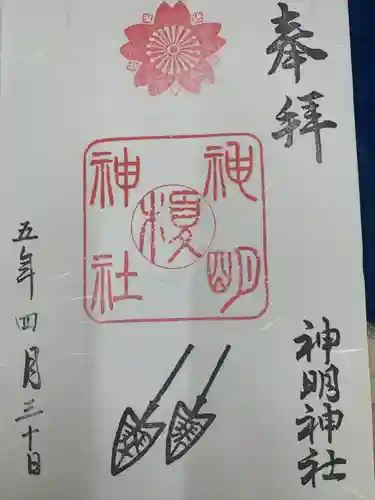 奉拝
神明神社
神明
神社
五年四月三十日